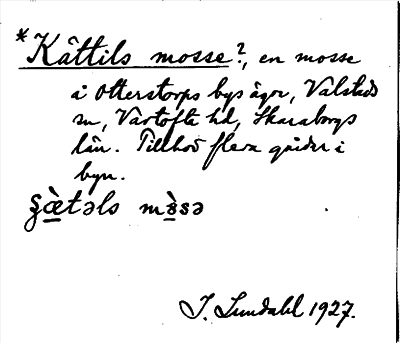 *Kättils mosse?, en mosse
i Otterstorps bys ägor, Valstads
sn, Vartofta hd, Skaraborgs
län. Tillhör flera gårdar i
byn.
mɞ̀sə
I. Lundahl 1927.